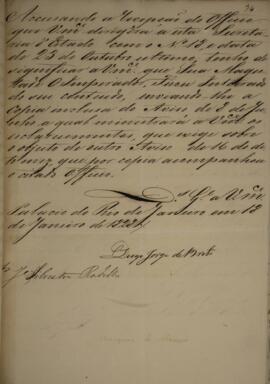 Accusando a recepção do Officio
que Vm.ce dirigira a esta Secreta
ria d'Estado com o Nº 18, e data
de 25 de Outubro ultimo, tenho de
significar a Vm.ce que Sua Mages
tade O Imperador, Ficou Inteirado
do seu conteúdo, inviando lhe a
copia incluza do Aviso de 8 de Ju
nho, a qual ministrará a Vm.ce os
esclarecimentos, que exige sobre
o objecto de outro Aviso de 16 de
que por copia acompanhou
o citado Officio.
D.s G.e a Vm.ce
Palacio do Rio de Janeiro em 18
de Janeiro de
Diogo Jorge de Brito
Silvestre Rebello